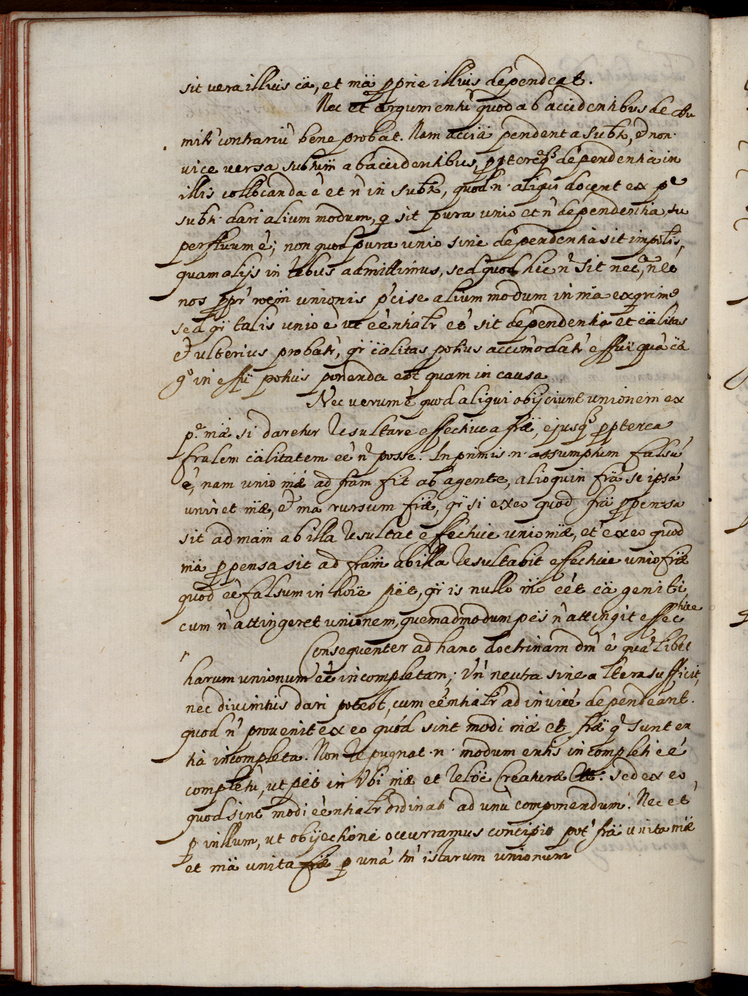 sit vera illius cä, et mä pprie illius dependeat.
Nec et argumentu' quod ab accidentibus de
mit' contrariu' bene probat. Nam accia pendent a subto, & non
vice versa subtum ab accidentibus, dependentia in
illis collocanda è et n' in subto, quod n. aliqui docent ex pte
subti dari alium modum, q sit pura unio et n' dependentia, su
perfluum è; non quod pura unio sine dependentia sit impolis,
quam alijs in rebus admittimus, sed quod hic n' sit nec,
nos unionis p'cise alium modum in mä exprime
sed talis unio è ut eentialr et sit dependentia et cälitas
& ulterius probat', cälitas potius accomodat' effui quä cä
g° in effu potius ponenda est quam in causa
Nec verum è quod aliqui obijciunt unionem ex
p. mæ si daretur resultare effective a frä, ejusq pptereа
fralem cälitatem eè n' posse. In primis n. assumptum falsü
è, nam unio mæ ad fram fit ab agente, alioquin frä se ipsä
uniret mæ, & mä rursum fræ, si ex eo quod frä ppensa
sit ad mam ab illa resultat effective unio mæ, et ex eo quod
mä ppensa sit ad fram ab illa resultabit effective unio fræ
quod eè falsum in hoïe pèt, is nullo mo eét cä geniti,
cum n' attingeret unionem, quemadmodum n' attingit effec
tive
Consequenter ad hanc doctrinam dm è quälibet
harum unionum eè incompletam; Un' neutra sine altera sufficit,
nec divinitus dari potest, cum eentialr ad invicè dependeant.
quod n' provenit ex eo quod sint modi mæ et fræ q sunt en
tia incompleta. Non repugnat n. modum entis in completi eè
completu', ut pèt in Ubi mæ et creaturæ: sed ex eo,
quod sint modi eentialr ordinati ad unü componendum. Nec et
p illum, ut obijectioni occurramus concipio pot' frä unita mæ
et mä unita p una' tm' istarum unionum